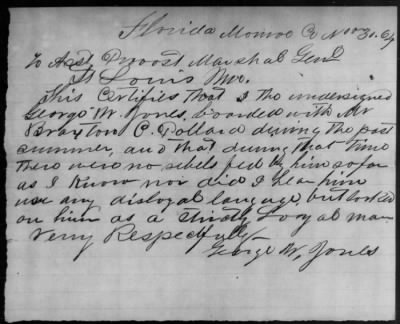 Florida Monroe Co Nov 30. 64
To Asst Provost Marshal Genl
St Louis Mo.
This Certifies that I the undersigned
George W. Jones, boarded with Mr
Braxton C. Pollard during the past
summer, and that during that time
there were no rebels fed by him so far
as I Know nor did I hear him
use any disloyal language, but looked
on him as a strictly Loyal man
Very Respectfully
George W, Jones